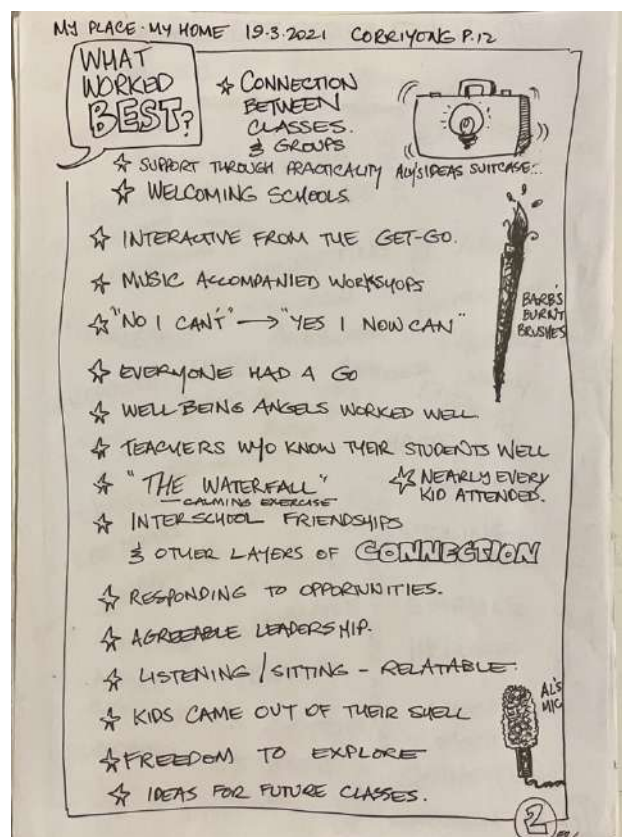 MY PLACE · MY HOME 19.3.2021 CORRIYONG P.12
WHAT
WORKED
BEST?
☆ CONNECTION
BETWEEN
CLASSES.
& GROUPS
☆ SUPPORT THROUGH PRACTICALITY
ALY'S IDEAS SUITCASE...
☆ WELCOMING SCHOOLS.
☆ INTERACTIVE FROM THE GET-GO.
☆ MUSIC ACCOMPANIED WORKSHOPS
BARB'S
BURNT
BRUSHES
☆ "NO I CAN'T" → "YES I NOW CAN"
☆ EVERYONE HAD A GO
☆ WELLBEING ANGELS WORKED WELL.
☆ TEACHERS WHO KNOW THEIR STUDENTS WELL
☆ "THE WATERFALL"
— CALMING EXERCISE
☆ NEARLY EVERY
KID ATTENDED.
☆ INTERSCHOOL FRIENDSHIPS
& OTHER LAYERS OF CONNECTION
☆ RESPONDING TO OPPORTUNITIES.
☆ AGREEABLE LEADERSHIP.
☆ LISTENING / SITTING - RELATABLE
☆ KIDS CAME OUT OF THEIR SHELL
AL'S
MIC
☆ FREEDOM TO EXPLORE
☆ IDEAS FOR FUTURE CLASSES.
2